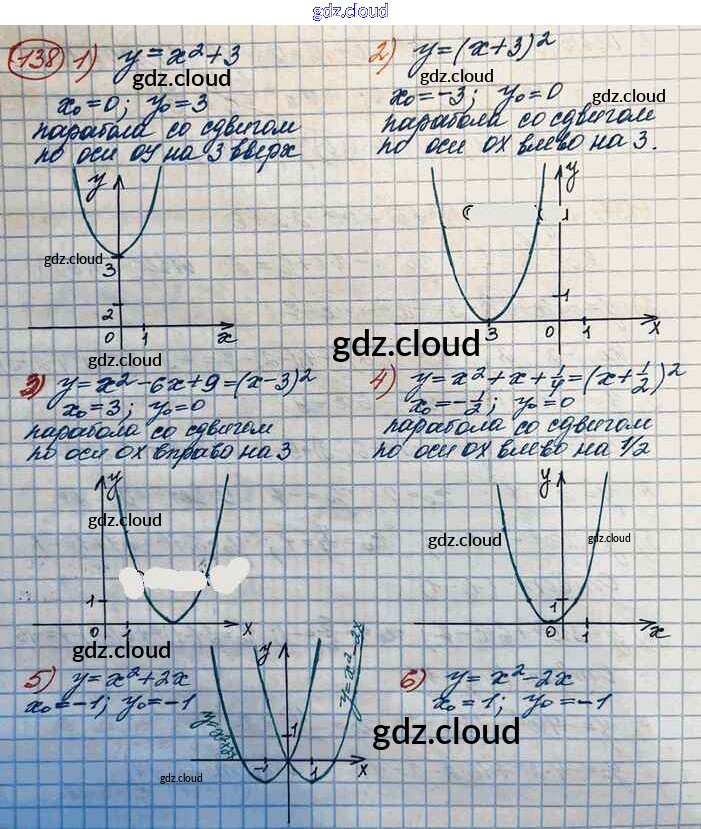 gdz.cloud
138 1) y = x² + 3
gdz.cloud
x₀ = 0; y₀ = 3
парабола со сдвигом
по оси OY на 3 вверх
y
3
gdz.cloud
2
0 1 x
gdz.cloud
2) y = (x+3)²
x₀ = -3; y₀ = 0
gdz.cloud
парабола со сдвигом
по оси OX влево на 3.
y
1
1
3 0 1 x
gdz.cloud
3) y = x² - 6x + 9 = (x-3)²
x₀ = 3; y₀ = 0
парабола со сдвигом
по оси OX вправо на 3
y
gdz.cloud
1
0 1 x
gdz.cloud
4) y = x² + x + 1/4 = (x + 1/2)²
x₀ = -1/2; y₀ = 0
парабола со сдвигом
по оси OX влево на 1/2
y
gdz.cloud
gdz.cloud
1
0 1 x
5) y = x² + 2x
x₀ = -1; y₀ = -1
y
y = x² - 2x
y = x² + 2x
1
-1 1 x
gdz.cloud
6) y = x² - 2x
x₀ = 1; y₀ = -1
gdz.cloud